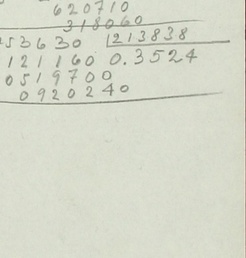 620710
318060
253630 213838
121160 0.3524
0519700
0920240